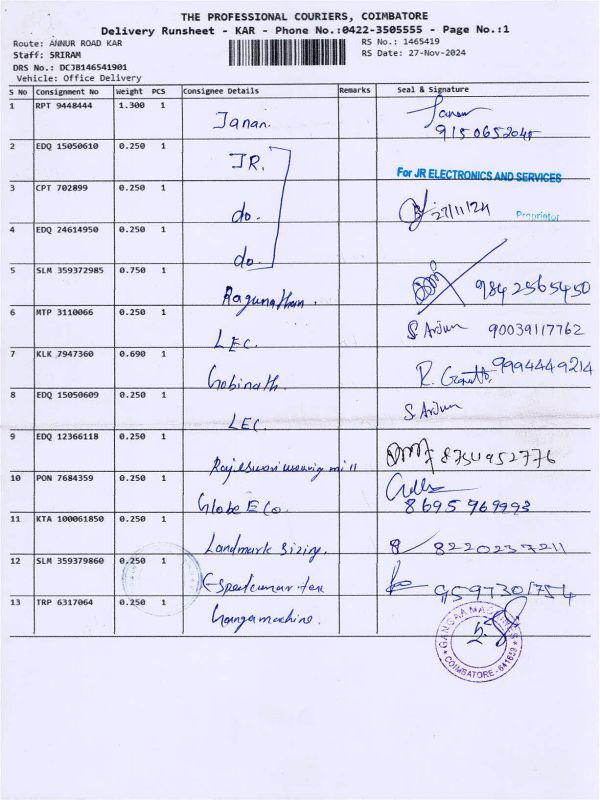 THE PROFESSIONAL COURIERS, COIMBATORE
Delivery Runsheet - KAR - Phone No.:0422-3505555 - Page No.:1
Route: ANNUR ROAD KAR RS No.: 1465419
Staff: SRIRAM RS Date: 27-Nov-2024
DRS No.: DCJ8146541901
Vehicle: Office Delivery
S No Consignment No Weight PCS Consignee Details Remarks Seal & Signature
1 RPT 9448444 1.300 1 Janan.
2 EDQ 15050610 0.250 1 JR. For JR ELECTRONICS AND SERVICES
3 CPT 702899 0.250 1 do. 27/11/24 Proprietor
4 EDQ 24614950 0.250 1 do.
5 SLM 359372985 0.750 1 Ragunathan. 9842565450
6 MTP 3110066 0.250 1 LEC. S Arjun 90039117762
7 KLK 7947360 0.690 1 Gobinath. 9994449214
8 EDQ 15050609 0.250 1 LEC. S Arjun
9 EDQ 12366118 0.250 1 8754952776
10 PON 7684359 0.250 1 Globe E Co. 8695969993
11 KTA 100061850 0.250 1 Landmark Sizing. 8220237211
12 SLM 359379860 0.250 1
13 TRP 6317064 0.250 1 Ganga machine.
COIMBATORE - 641659